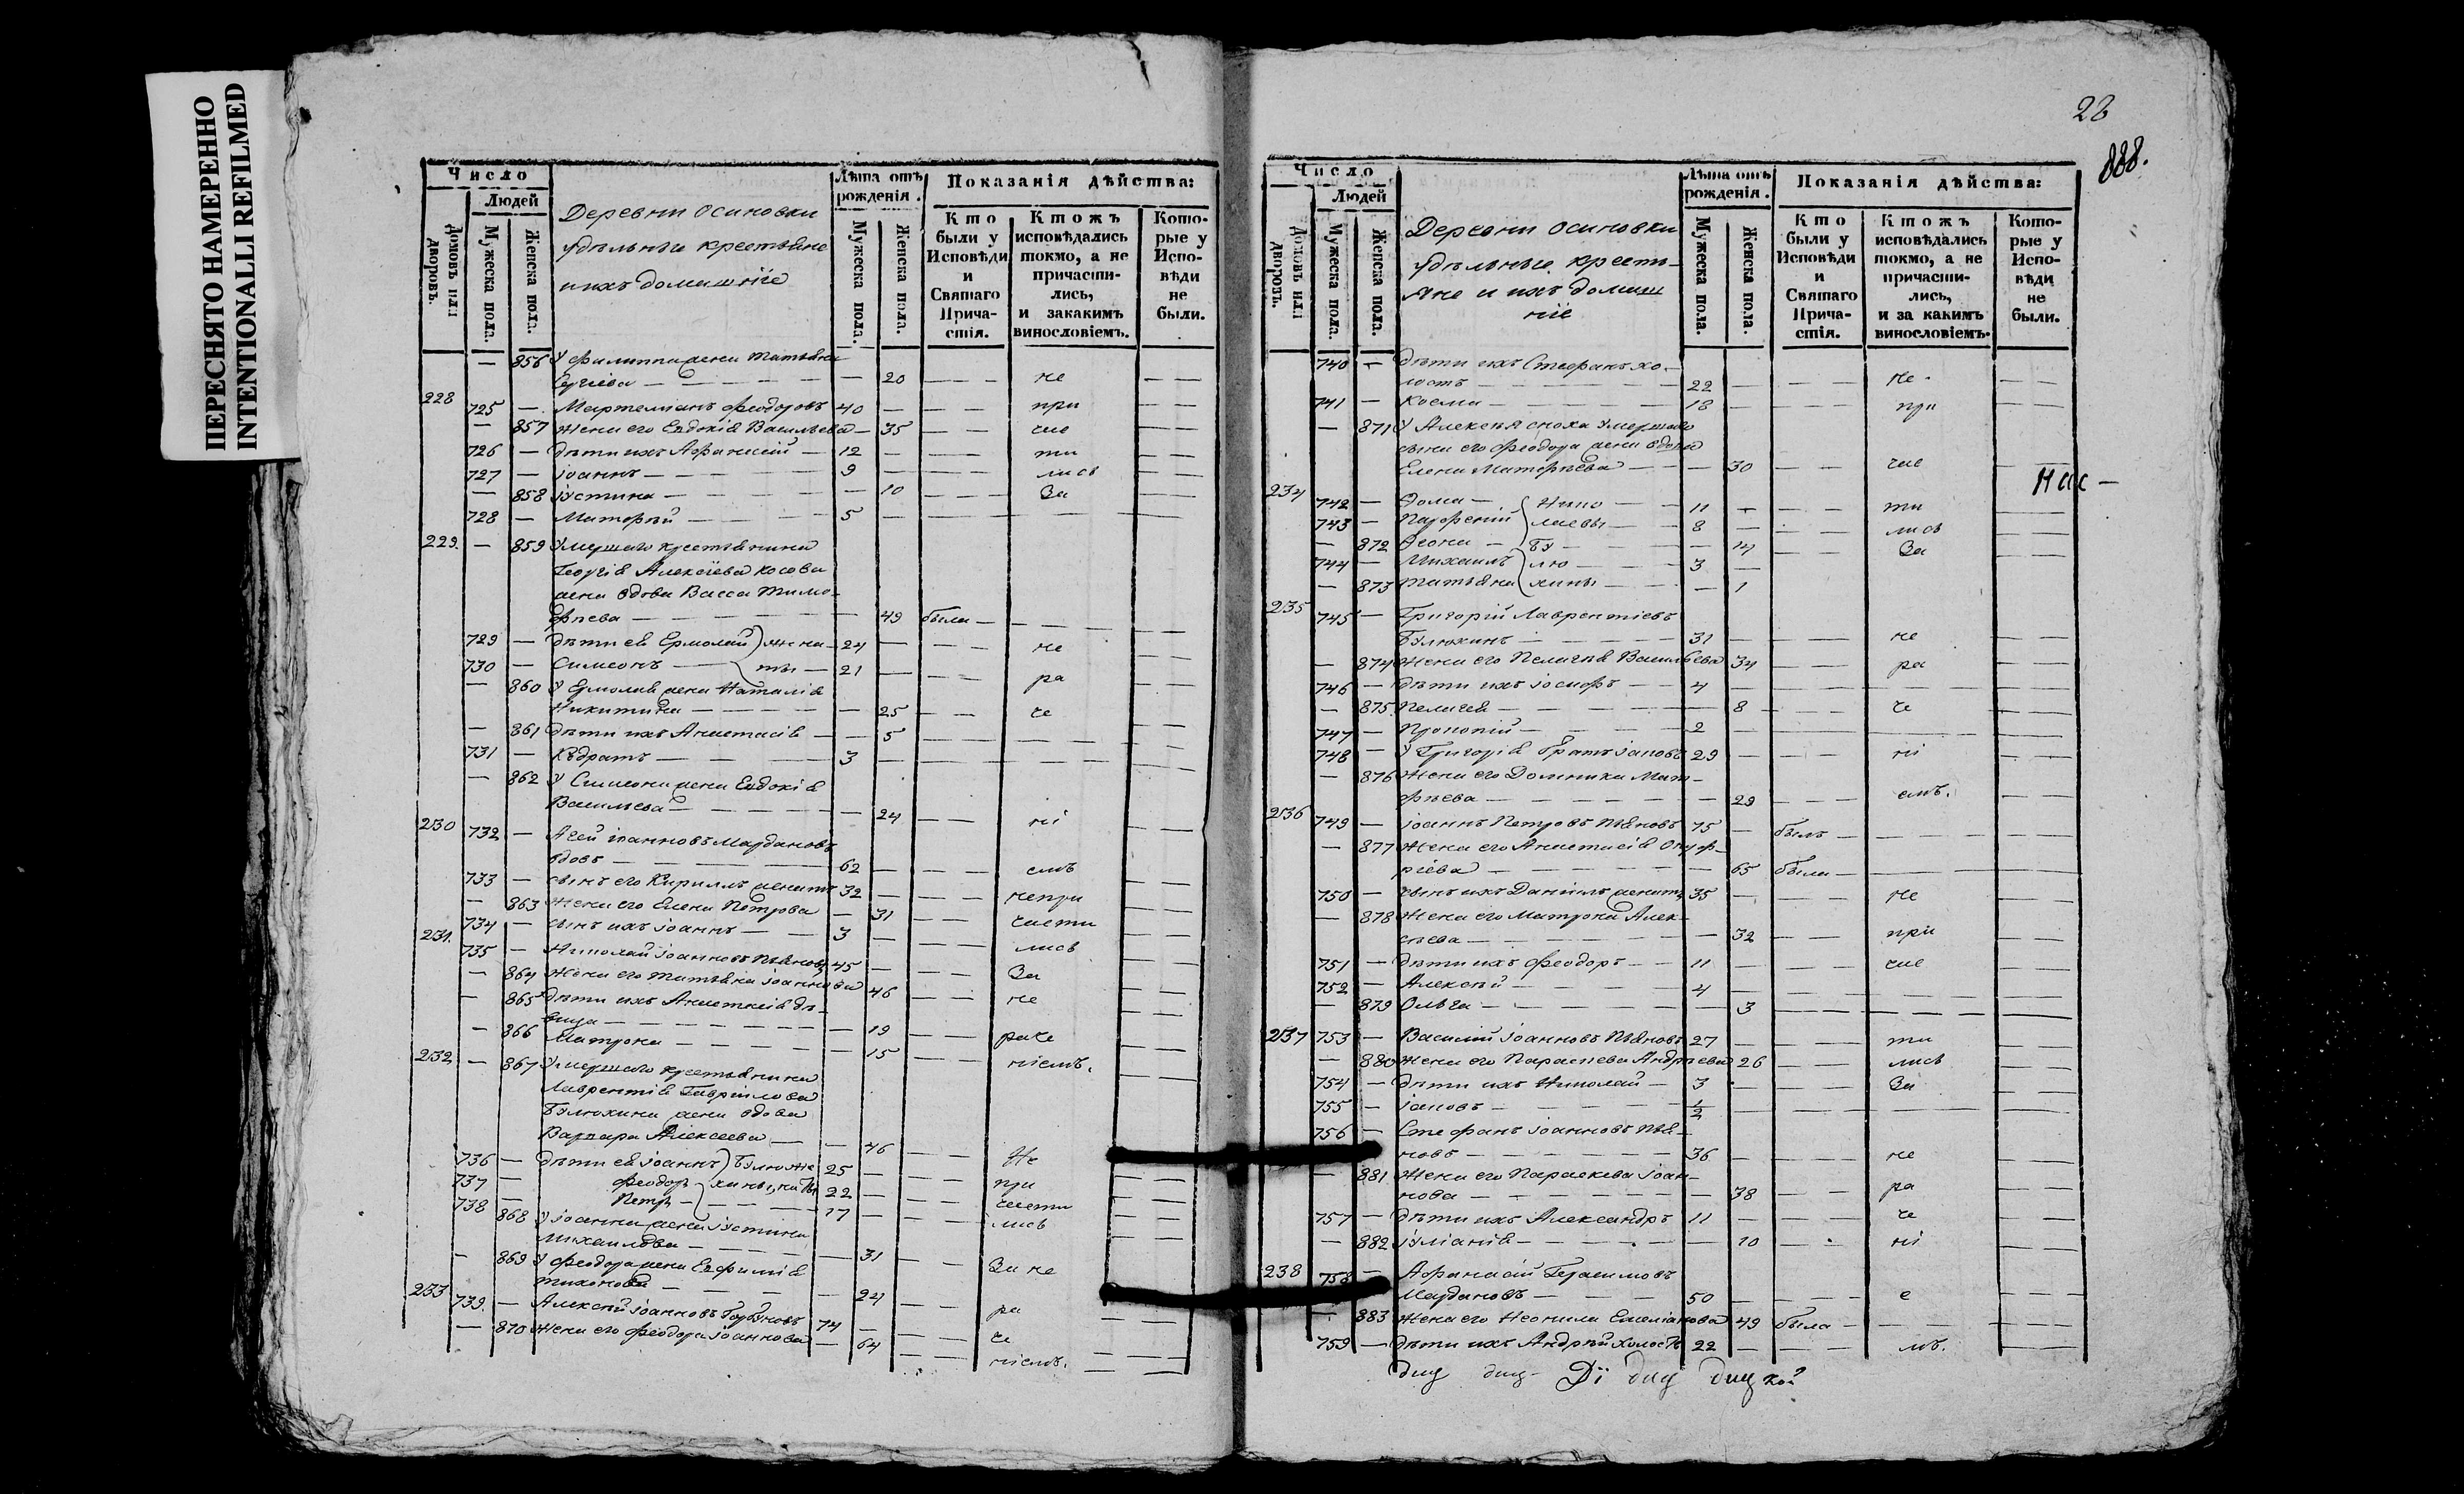 ПЕРЕСНЯТО НАМЕРЕННО
INTENTIONALLI REFILMED
Число
Людей
Домовъ или дворовъ.
Мужеска пола.
Женска пола.
Деревни Осиновки
удѣльныя крестьяне
и ихъ домашніе
Лѣта отъ рожденія.
Мужеска пола.
Женска пола.
Показанія дѣйства:
Кто были у Исповѣди и Святаго Причастія.
Ктожъ исповѣдались токмо, а не причастились, и закакимъ винословіемъ.
Которые у Исповѣди не были.
— 856 У Филиппа жена Татьяна
Сергіева — — 20 — — не — —
228 725 — Мартеміанъ Феодоровъ 40 — — — при — —
— 857 Жена его Евдокія Васильева — 35 — — час — —
726 — Дѣти ихъ Афанасій — 12 — — — ти — —
727 — Іоаннъ — 9 — — — лись — —
— 858 Іустина — — 10 — — За — —
728 — Матфѣй — 5 — — — — —
229. — 859 Умершаго крестьянина
Георгія Алексіева Косова
жена вдова Васса Тимо-
фѣева — — 49 была — — —
729 — Дѣти ея Ермолай } жена- 24 — — — не — —
730 — Симеонъ — } ты — 21 — — — ра — —
— 860 У Ермолая жена Наталія
Никитина — — 25 — — че — —
— 861 Дѣти ихъ Анастасія — — 5 — — — —
731 — Кѡдратъ — 3 — — — —
— 862 У Симеона жена Евдокія
Васильева — — 24 — — ні — —
230 732 — Агей Іоанновъ Мардановъ
вдовъ — 62 — — — емъ — —
733 — сынъ его Кириллъ женатъ 32 — — — непри — —
— 863 Жена его Елена Петрова — 31 — — части — —
734 — сынъ ихъ Іоаннъ — 3 — — — лись — —
231. 735 — Николай Іоанновъ Пьяновъ 45 — — — За — —
— 864 Жена его Татьяна Іоаннова 46 — — не — —
— 865 Дѣти ихъ Анастасія дѣ-
вица — — 19 — — раче — —
— 866 Матрона — — 15 — — ніемъ. — —
232 — 867 Умершаго крестьянина
Лаврентія Гавріилова
Бѹлюкина жена вдова
Варвара Алексеева — — 46 — — Не — —
736 — Дѣти ея Іоаннъ } Бѹлю же 25 — — — при — —
737 — Феодоръ } кины, наты 22 — — — части — —
738 — Петръ — } — 17 — — — лись — —
868 У Іоанна жена Іустина
Михаилова — — 31 — — За не — —
— 869 У Феодора жена Евфимія
Тихонова — — 24 — — ра — —
233 739. — Алексѣй Іоанновъ 74 — — — че — —
— 870 Жена его Феодора Іоаннова — 64 — — ніемъ. — —
28
888.
Число
Людей
Домовъ или дворовъ.
Мужеска пола.
Женска пола.
Деревни Осиновки
удѣльные кресть-
яне и ихъ домаш
ніе
Лѣта отъ рожденія.
Мужеска пола.
Женска пола.
Показанія дѣйства:
Кто были у Исповѣди и Святаго Причастія.
Ктожъ исповѣдались токмо, а не причастились, и за какимъ винословіемъ.
Которые у Исповѣди не были.
740 — Дѣти ихъ Стефанъ хо-
лостъ — 22 — — — не — —
741 — Косма — 18 — — — при — —
— 871 У Алексѣя сноха умершаго
сына его Феодора жена вдова
Елена Матфѣева — — 30 — — час — —
234 742 — Ѳома — { Нико — 11 — — — ти — —
743 — Парфеній { лаевы — 8 — — — лись — —
— 872 — { Бѹ — — 14 — — За — —
744 — Михаилъ } лю — 3 —
— 873 Татьяна { кины — — 1
235 745 — Григорій Лаврентіевъ
Бѹлюкинъ — 31 — — — не — —
— 874 Жена его Пелагѣя Васильева 34 — — ра — —
746 — Дѣти ихъ Іосифъ — 4 — — — —
— 875 Пелагея — — 8 — — че — —
747 — Прокопій — 2 — — — —
748 — У Григорія братъ Іаковъ 29 — — — ні — —
— 876 Жена его Домника Мат-
фѣева — — 29 — — емъ. — —
236 749 — Іоаннъ Петровъ Пьяновъ 75 — былъ — — —
— 877 Жена его Анастасія Онуф-
ріева — — 65 была — — —
750 — сынъ ихъ Даніилъ женатъ 35 — — — не — —
— 878 Жена его Матрона Алек-
сѣева — — 32 — — при — —
751 — Дѣти ихъ Феодоръ — 11 — — — час — —
752 — Алексѣй — 4 — — — —
— 879 Ольга — — 3 — — — —
237 753 — Василій Іоанновъ Пьяновъ 27 — — — ти — —
— 880 Жена его Параскева Андрѣева 26 — — лись — —
754 — Дѣти ихъ Николай — 3 — — — За — —
755 — Іаковъ — 1/2 — — — —
756 — Стефанъ Іоанновъ Пья-
новъ — 36 — — — не — —
— 881 Жена его Параскева Іоан-
нова — — 38 — — ра — —
757 — Дѣти ихъ Александръ 11 — — — че — —
— 882 Іуліанія — — 10 — — ні — —
238 758 — Афанасій Герасимовъ
Мардановъ — 50 — — — е — —
— 883 Жена его Неонила Емеліанова 49 была — — —
759 — Дѣти ихъ Андрѣй холостъ 22 — — — мъ. — —